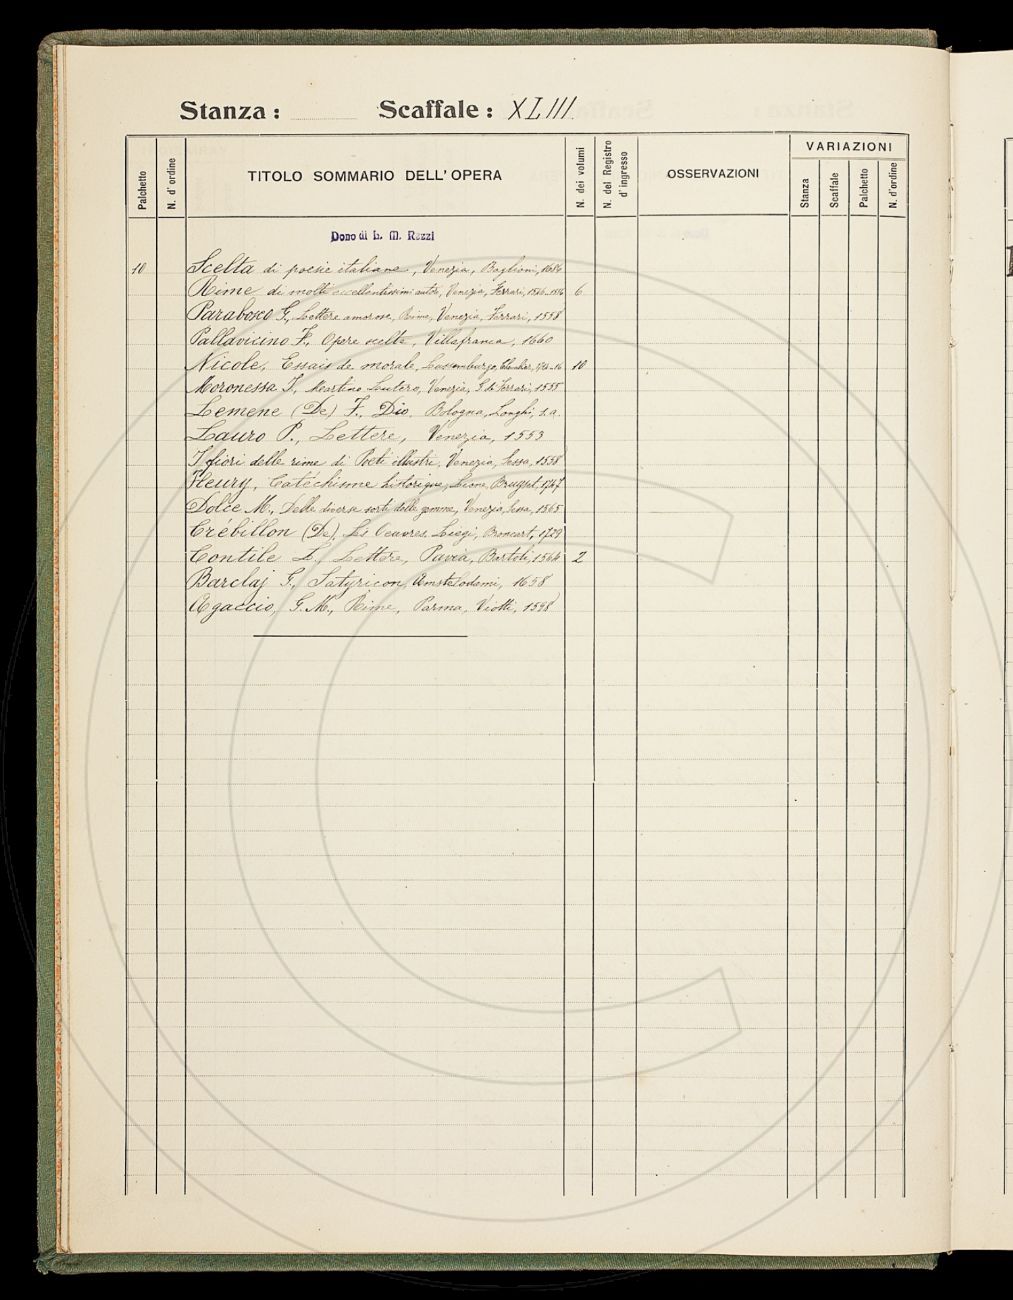 Stanza: Scaffale: XLIII
VARIAZIONI
Palchetto N. d'ordine TITOLO SOMMARIO DELL'OPERA N. dei volumi N. del Registro d'ingresso OSSERVAZIONI Stanza Scaffale Palchetto N. d'ordine
Dono di L. M. Rezzi
10 Scelta di poesie italiane, Venezia, Baglioni, 1686
Rime di molti eccellentissimi autori, Venezia, Ferrari, 6
Parabosco G., Lettere amorose, Rime, Venezia, Ferrari, 1558
Pallavicino F., Opere scelte, Villafranca, 1660
Nicole, Essais de morale, Lussemburgo, 10
Moronessa J., Martino Lutero, Venezia, G. de Ferrari, 1555
Lemene (De) F., Dio, Bologna, Longhi, s.a.
Lauro P., Lettere, Venezia, 1553
I fiori delle rime di Poeti illustri, Venezia, Sessa, 1558
Fleury, Catéchisme historique, Lione, Bruyset, 1747
Dolce M., Delle diverse sorti delle gemme, Venezia, Sessa, 1565
Crébillon (De), Les Oeuvres, Liegi, Broncart, 1729
Contile L., Lettere, Pavia, Bartoli, 1564 2
Barclaj G., Satyricon, Amstelodami, 1658
Agaccio, G. M., Rime, Parma, Viotti, 1598